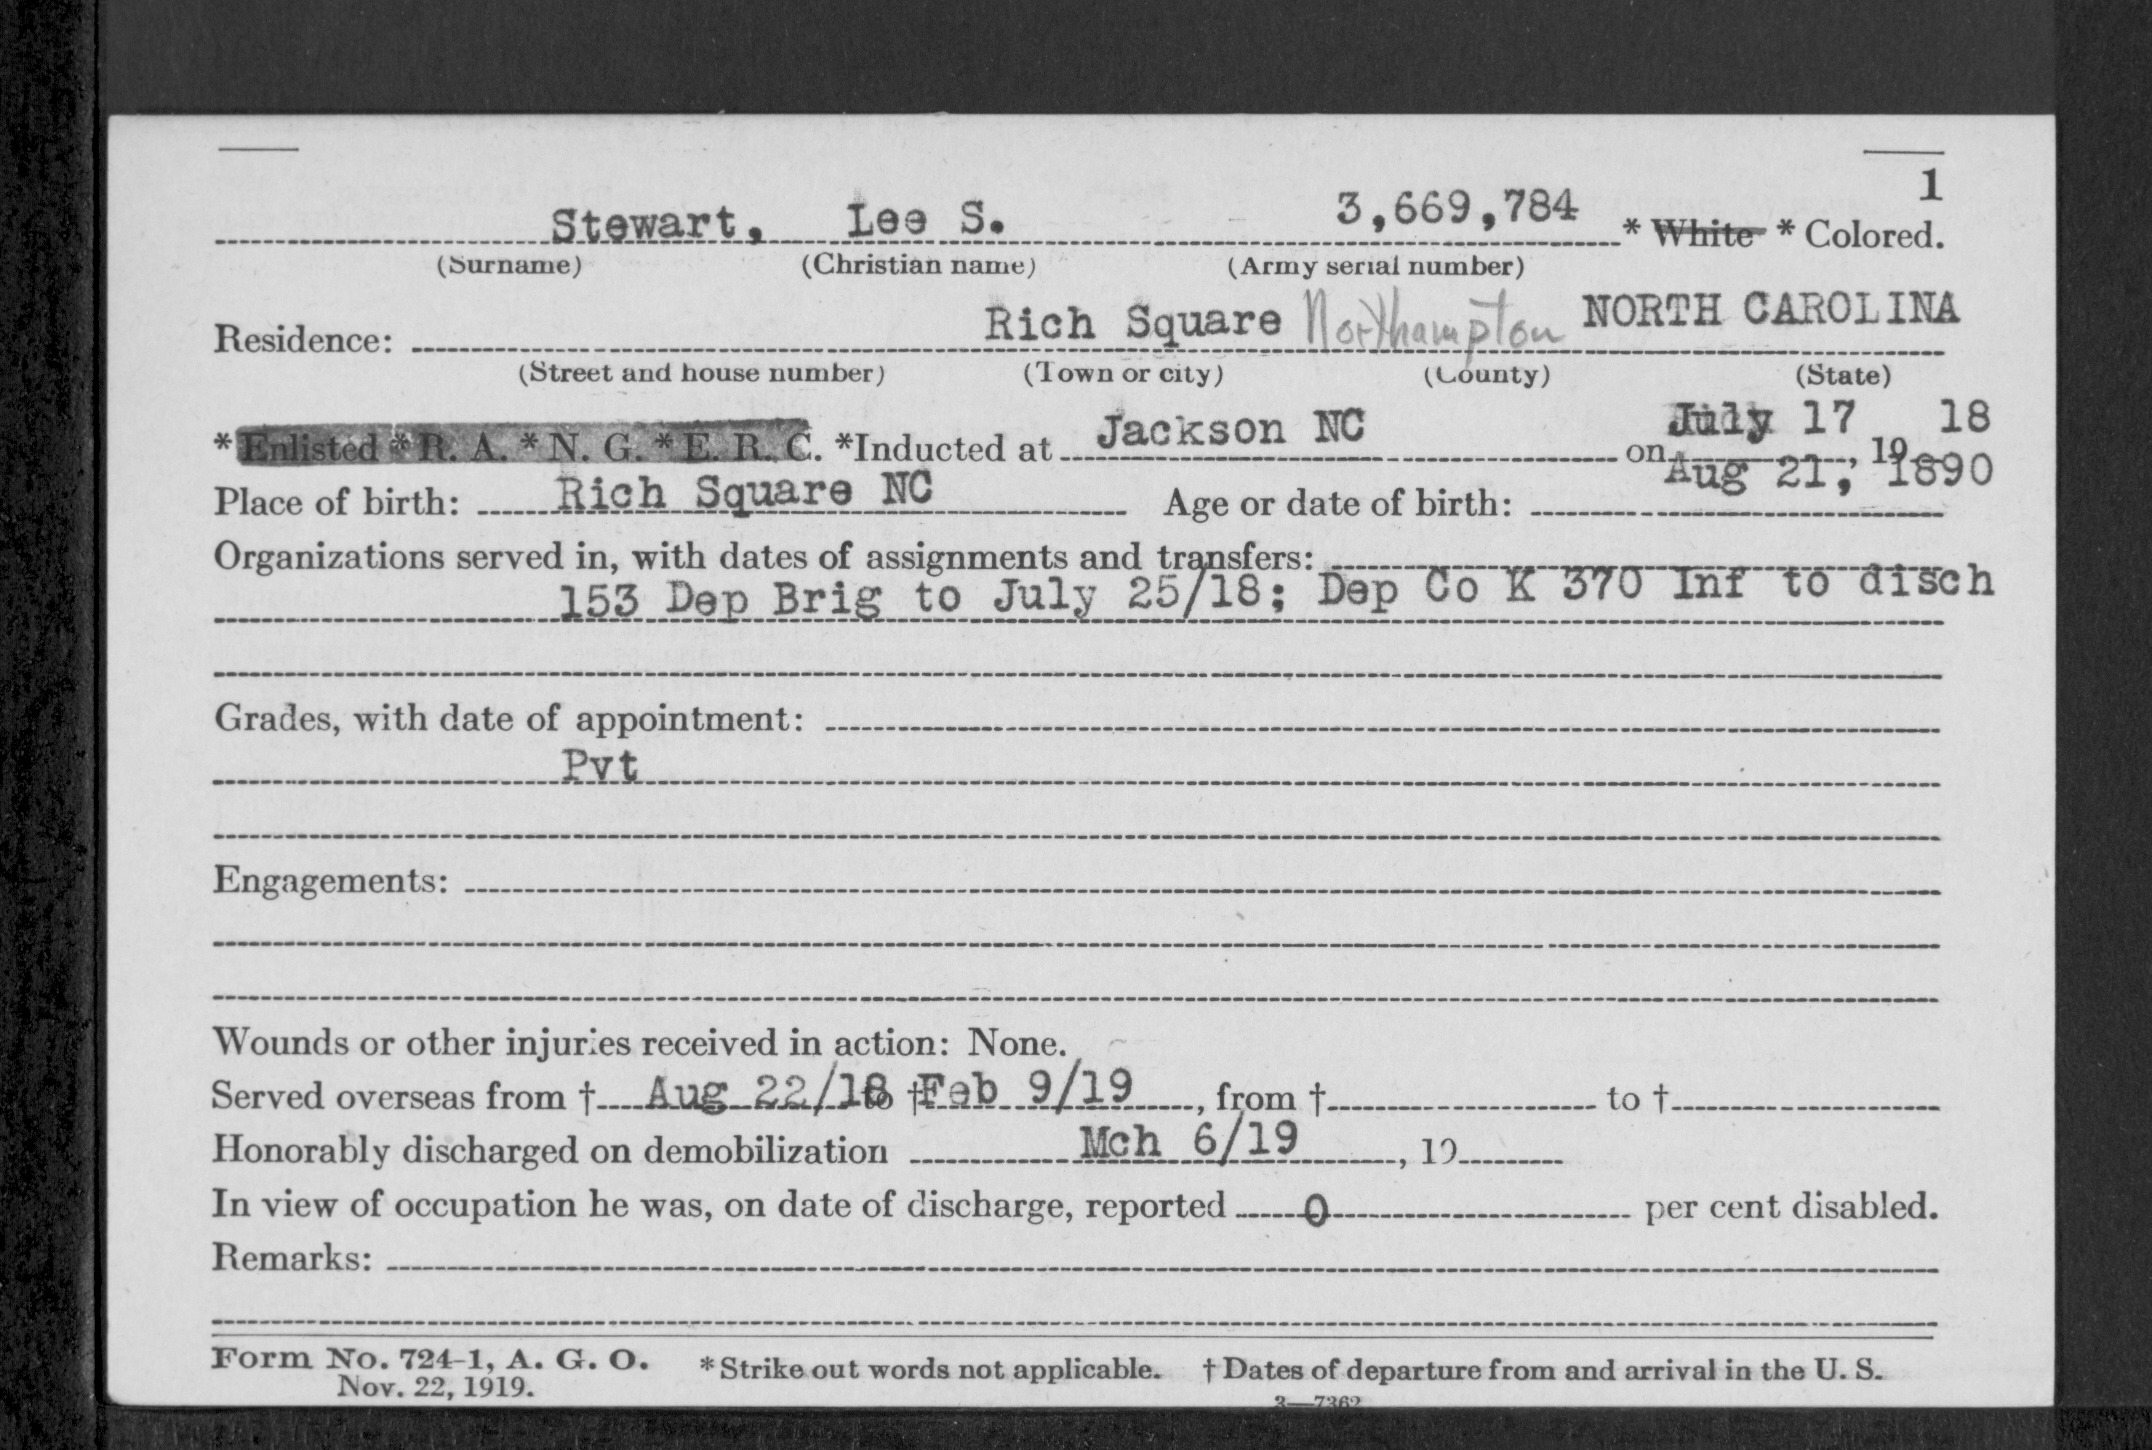 1
Stewart, Lee S. 3,669,784 * White * Colored.
(Surname) (Christian name) (Army serial number)
Residence: Rich Square Northampton NORTH CAROLINA
(Street and house number) (Town or city) (County) (State)
*Enlisted *R. A. *N. G. *E. R. C. *Inducted at Jackson NC on July 17, 19 18
Place of birth: Rich Square NC Age or date of birth: Aug 21, 1890
Organizations served in, with dates of assignments and transfers:
153 Dep Brig to July 25/18; Dep Co K 370 Inf to disch
Grades, with date of appointment:
Pvt
Engagements:
Wounds or other injuries received in action: None.
Served overseas from † Aug 22/18 to † Feb 9/19, from † to †
Honorably discharged on demobilization Mch 6/19, 19
In view of occupation he was, on date of discharge, reported 0 per cent disabled.
Remarks:
Form No. 724-1, A. G. O. *Strike out words not applicable. † Dates of departure from and arrival in the U. S.
Nov. 22, 1919.
3—7362